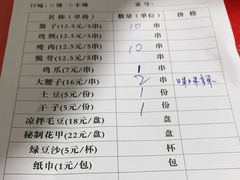 口味：○辣 ○不辣 桌号：
名称(单价) 数量(单位) 价格
筋子(12.5元/5串) 10 串
鸡脆(12.5元/5串) 串
瘦肉(12.5元/5串) 10 串
脆骨(12.5元/5串) 串
鸡爪(7元/串) 1 串
大腰子(16元/串) 2 串
土豆(5元/份) 1 份
干子(5元/份) 1 份
凉拌毛豆(18元/盘) 盘
秘制花甲(22元/盘) 盘
绿豆沙(5元/杯) 杯
纸巾(1元/包) 包